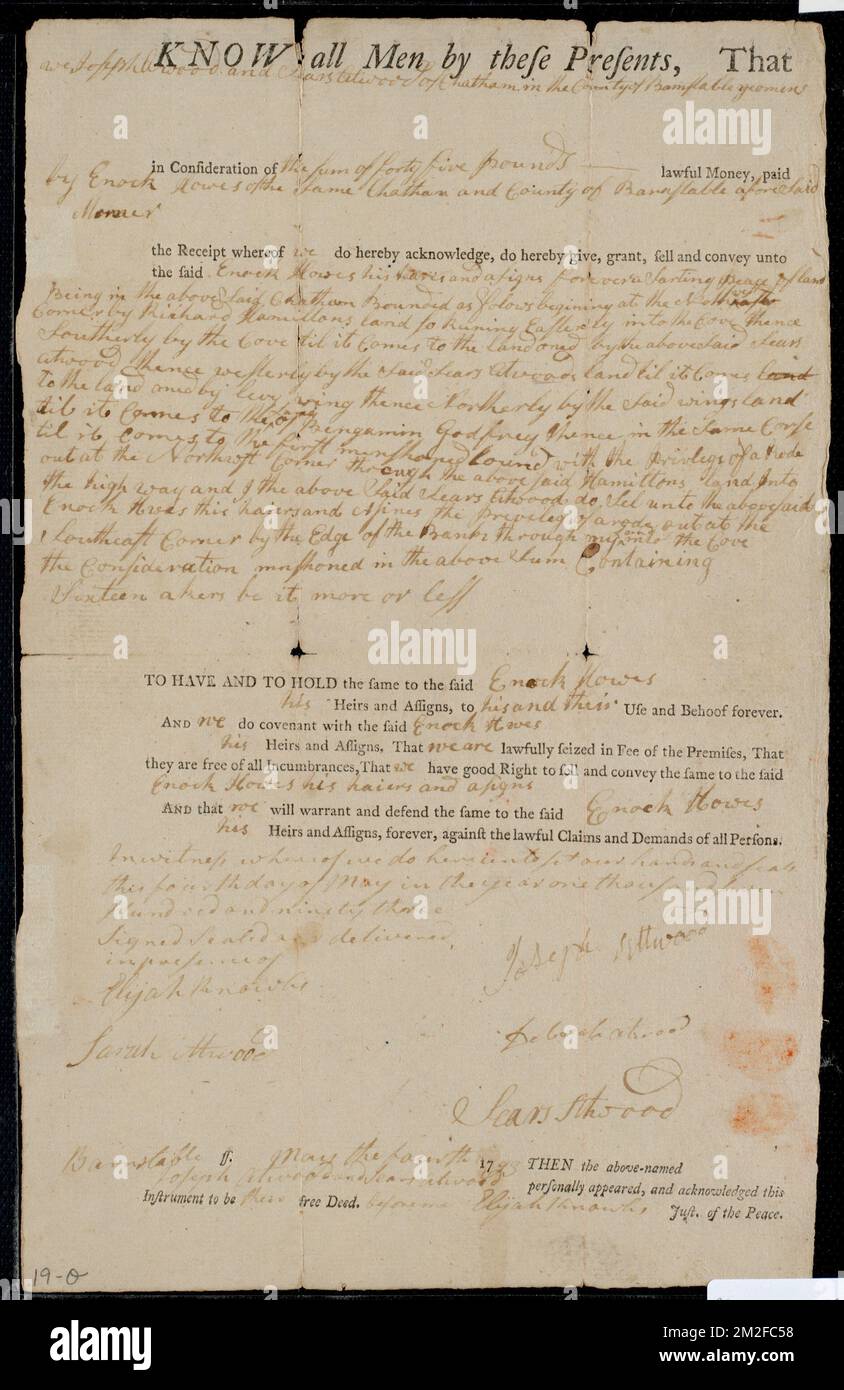 KNOW all Men by theſe Preſents, That
we Joseph Atwood and Sears Atwood of Chatham in the County of Barnstable yeomens
in Conſideration of the sum of forty five pounds lawful Money, paid
by Enock Howes of the Same Chatham and County of Barnstable afore Said
the Receipt whereof we do hereby acknowledge, do hereby give, grant, ſell and convey unto
the ſaid Enock Howes his haiers and asigns forever a Sarting peace of land
Being in the above Said Chatham Bounded as folows begining at the
Corner by Richard Hamiltons land so Runing Easterly into the Cove thence
Southerly by the Cove til it Comes to the land oned by the above Said Sears
atwood thence westerly by the Said Sears Atwoods land til it Comes land
to the land oned by levi wing thence Northerly by the Said wings land
til it Comes to the land of Bengamin Godfrey thence in the Same Corse
til it Comes to the first menshoned bound with the privileg of a rode
out at the Northwest Corner through the above Said Hamiltons land Into
the high way and I the above Said Sears Atwood do Sel unto the above said
Enock Hwes his haiers and Asines the privileg of a rode out at the
Southeast Corner by the Edge of the Bank through my land into the Cove
the Consideration mnshoned in the above Sum Containing
Sixteen akers be it more or less
TO HAVE AND TO HOLD the ſame to the ſaid Enock Howes
his Heirs and Aſſigns, to his and their Uſe and Behoof forever.
AND we do covenant with the ſaid Enock Hwes
his Heirs and Aſſigns, That we are lawfully ſeized in Fee of the Premiſes, That
they are free of all Incumbrances, That we have good Right to ſell and convey the ſame to the ſaid
Enock Howes his haiers and asigns
AND that we will warrant and defend the ſame to the ſaid Enock Howes
his Heirs and Aſſigns, forever, againſt the lawful Claims and Demands of all Perſons.
In witness whereof we do hereunto set our hands and seals
this fourth day of May in the year one thousand seven
Hundred and ninety three
Signed Sealed and delivered
in presence of
Joseph Attwood
Elijah Knowles
Deborah atwood
Sarah Atwood
Sears Atwood
Barnstable ſſ. May the fourth 1793 THEN the above-named
Joseph Atwood and Sears atwood perſonally appeared, and acknowledged this
Inſtrument to be their free Deed. before me Elijah Knowles Juſt. of the Peace.
19-O
alamy
Image ID: 2M2FC58
www.alamy.com